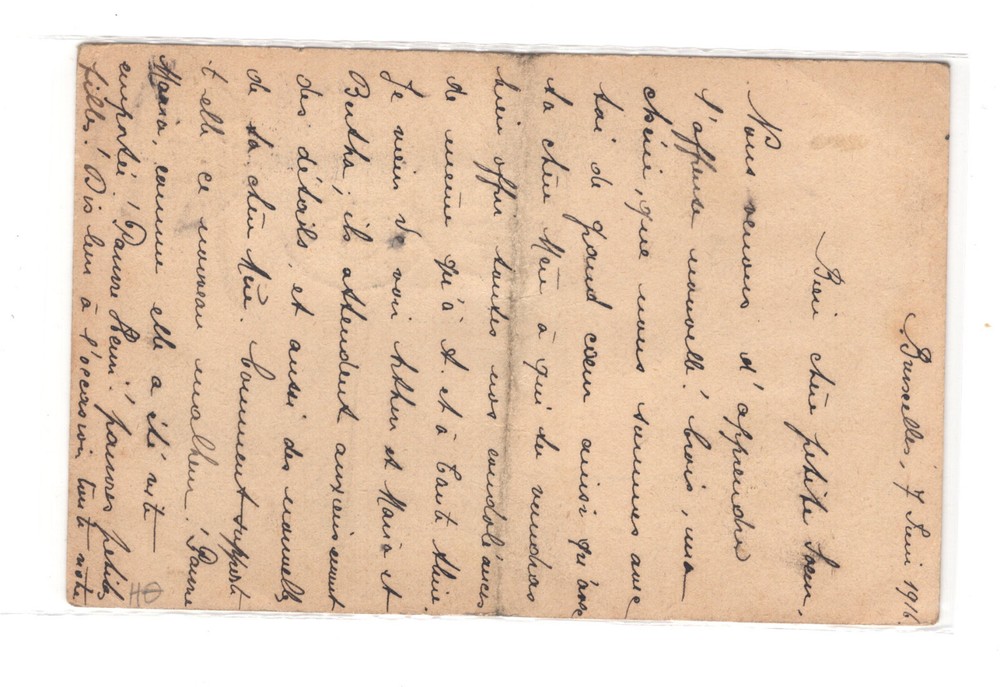 Bruxelles, 7 Juin 1916
Bien chère petite Soeur,
Nous venons d'apprendre
l'affreuse nouvelle! Crois, ma
chérie, que nous sommes avec
toi de grand coeur ainsi qu'avec
ta chère Mère à qui tu voudras
bien offrir toutes nos condoléances
de même qu'à A. et à Tante
Je viens d voir Arthur et Maria et
Bertha; ils attendent anxieusement
des détails et aussi des nouvelles
de ta chère Mère. Comment supporte
t elle ce nouveau malheur! Pauvre
Maria, comme elle a été vite
emportée! Pauvre Henri! pauvres petites
filles! Dis leur à l'occasion toute notre
HO